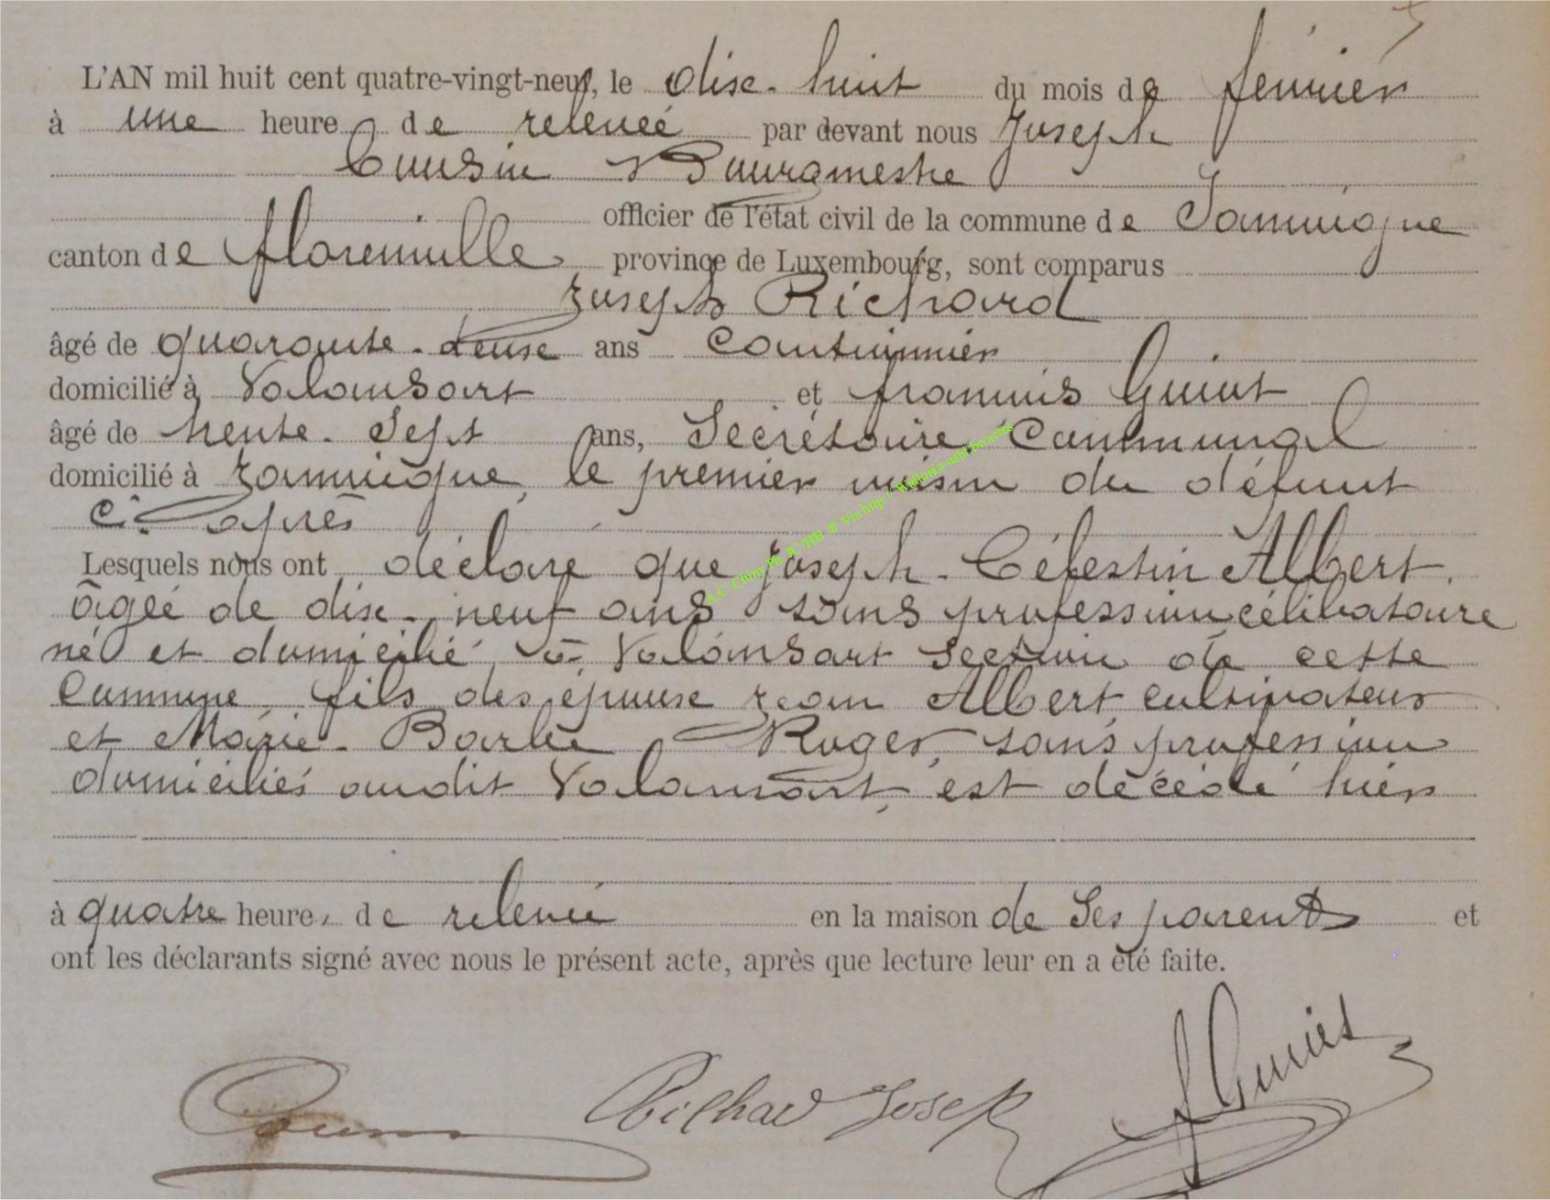 L'AN mil huit cent quatre-vingt-neuf, le dix-huit du mois de février
à une heure de relevée par devant nous Joseph
Cousin Bourgmestre
officier de l'état civil de la commune de Jamoigne
canton de florenville province de Luxembourg, sont comparus
Joseph Richard
âgé de quarante-deux ans cantonnier
domicilié à Valansart et françois Guiot
âgé de trente-Sept ans, Secrétaire Communal
domicilié à Jamoigne, le premier voisin du défunt
ci-après
Lesquels nous ont déclaré que Joseph-Célestin Albert,
âgée de dix-neuf ans sans profession célibataire
né et domicilié à Valansart Section de cette
Commune, fils des épouse Jean Albert cultivateur
et Marie-Barbe Roger, sans profession
domiciliés audit Valansart, est décédé hier
à quatre heures de relevée en la maison de Ses parents et
ont les déclarants signé avec nous le présent acte, après que lecture leur en a été faite.
Cousin Richard Joseph f Guiot